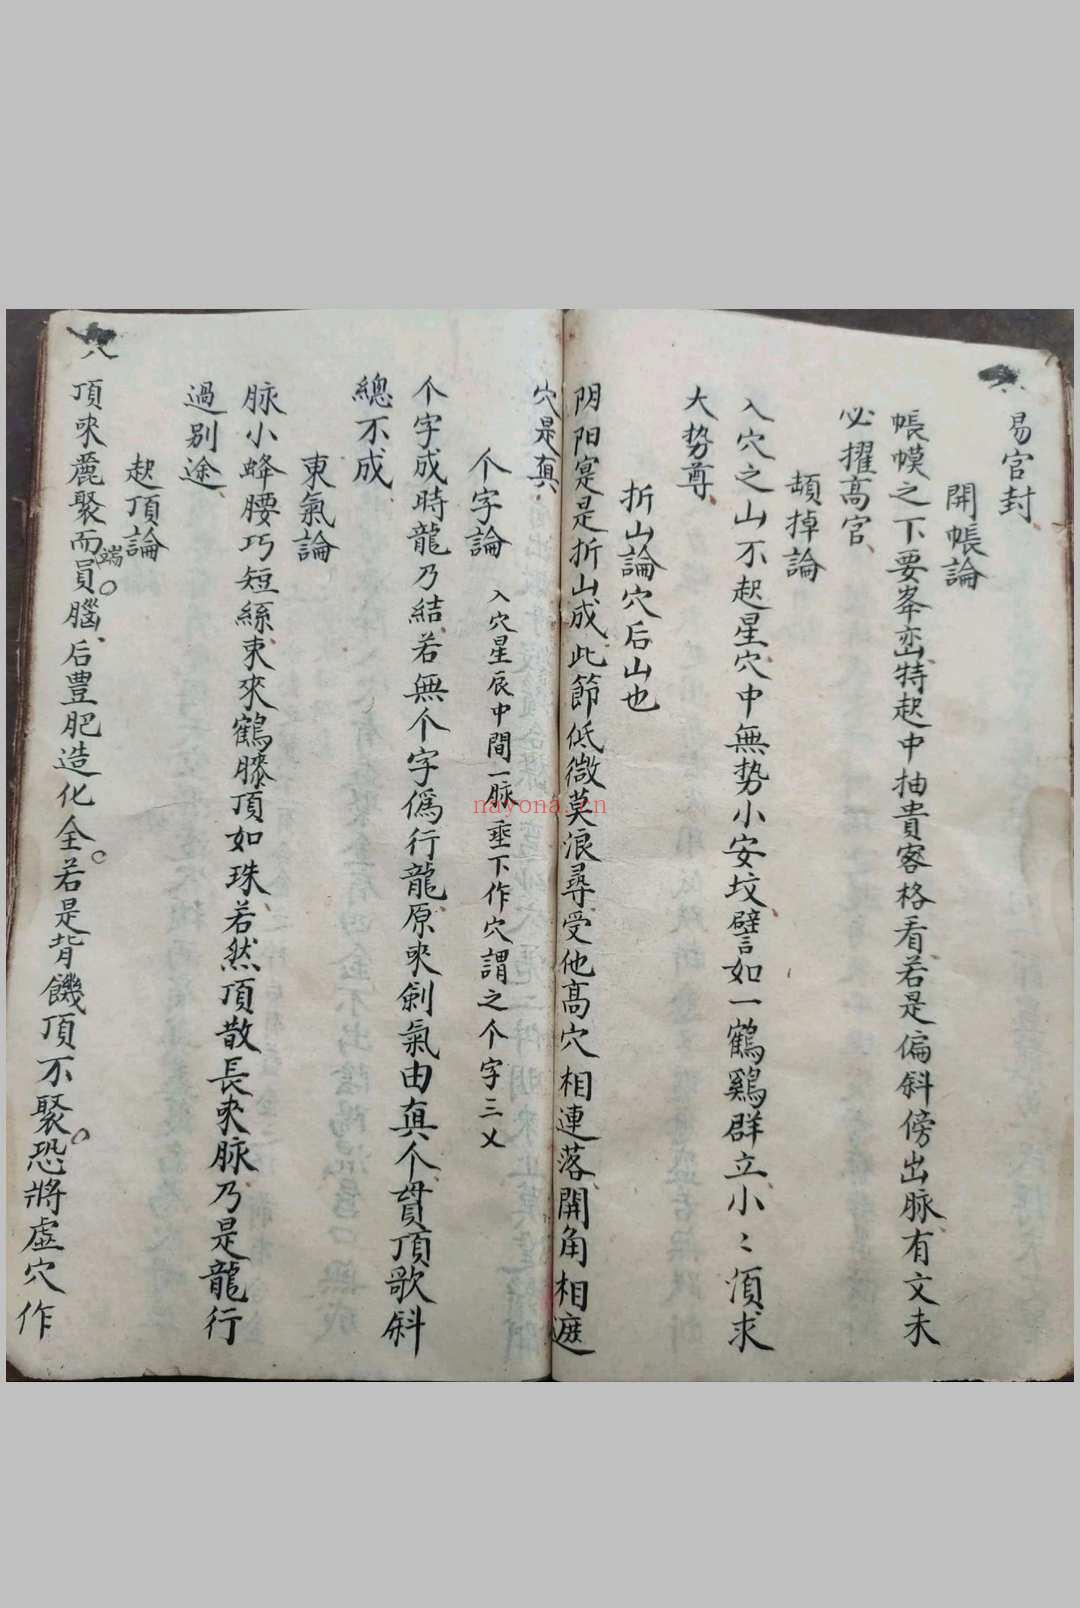 易宮封
開帳論
帳幙之下要峯巒特起中抽貴客格看若是偏斜傍出脉有文未
必擢高官
頓掉論
入穴之山不起星穴中無势小安坟譬如一鶴鷄群立小〻湏求
大势尊
折山論穴后山也
阴阳寔是折山成此節低微莫浪尋受他高穴相連落開角相遮
穴是真
个字論 入穴星辰中間一脉垂下作穴謂之个字三义
个字成時龍乃結若無个字僞行龍原來剝氣由真个貫頂歌斜
總不成
束氣論
脉小蜂腰巧短絲束來鶴膝頂如珠若然頂散長來脉乃是龍行
過別途
起頂論
頂來麗聚而端員腦后豊肥造化全若是背饑頂不聚恐將虛穴作
八
nayona.cn